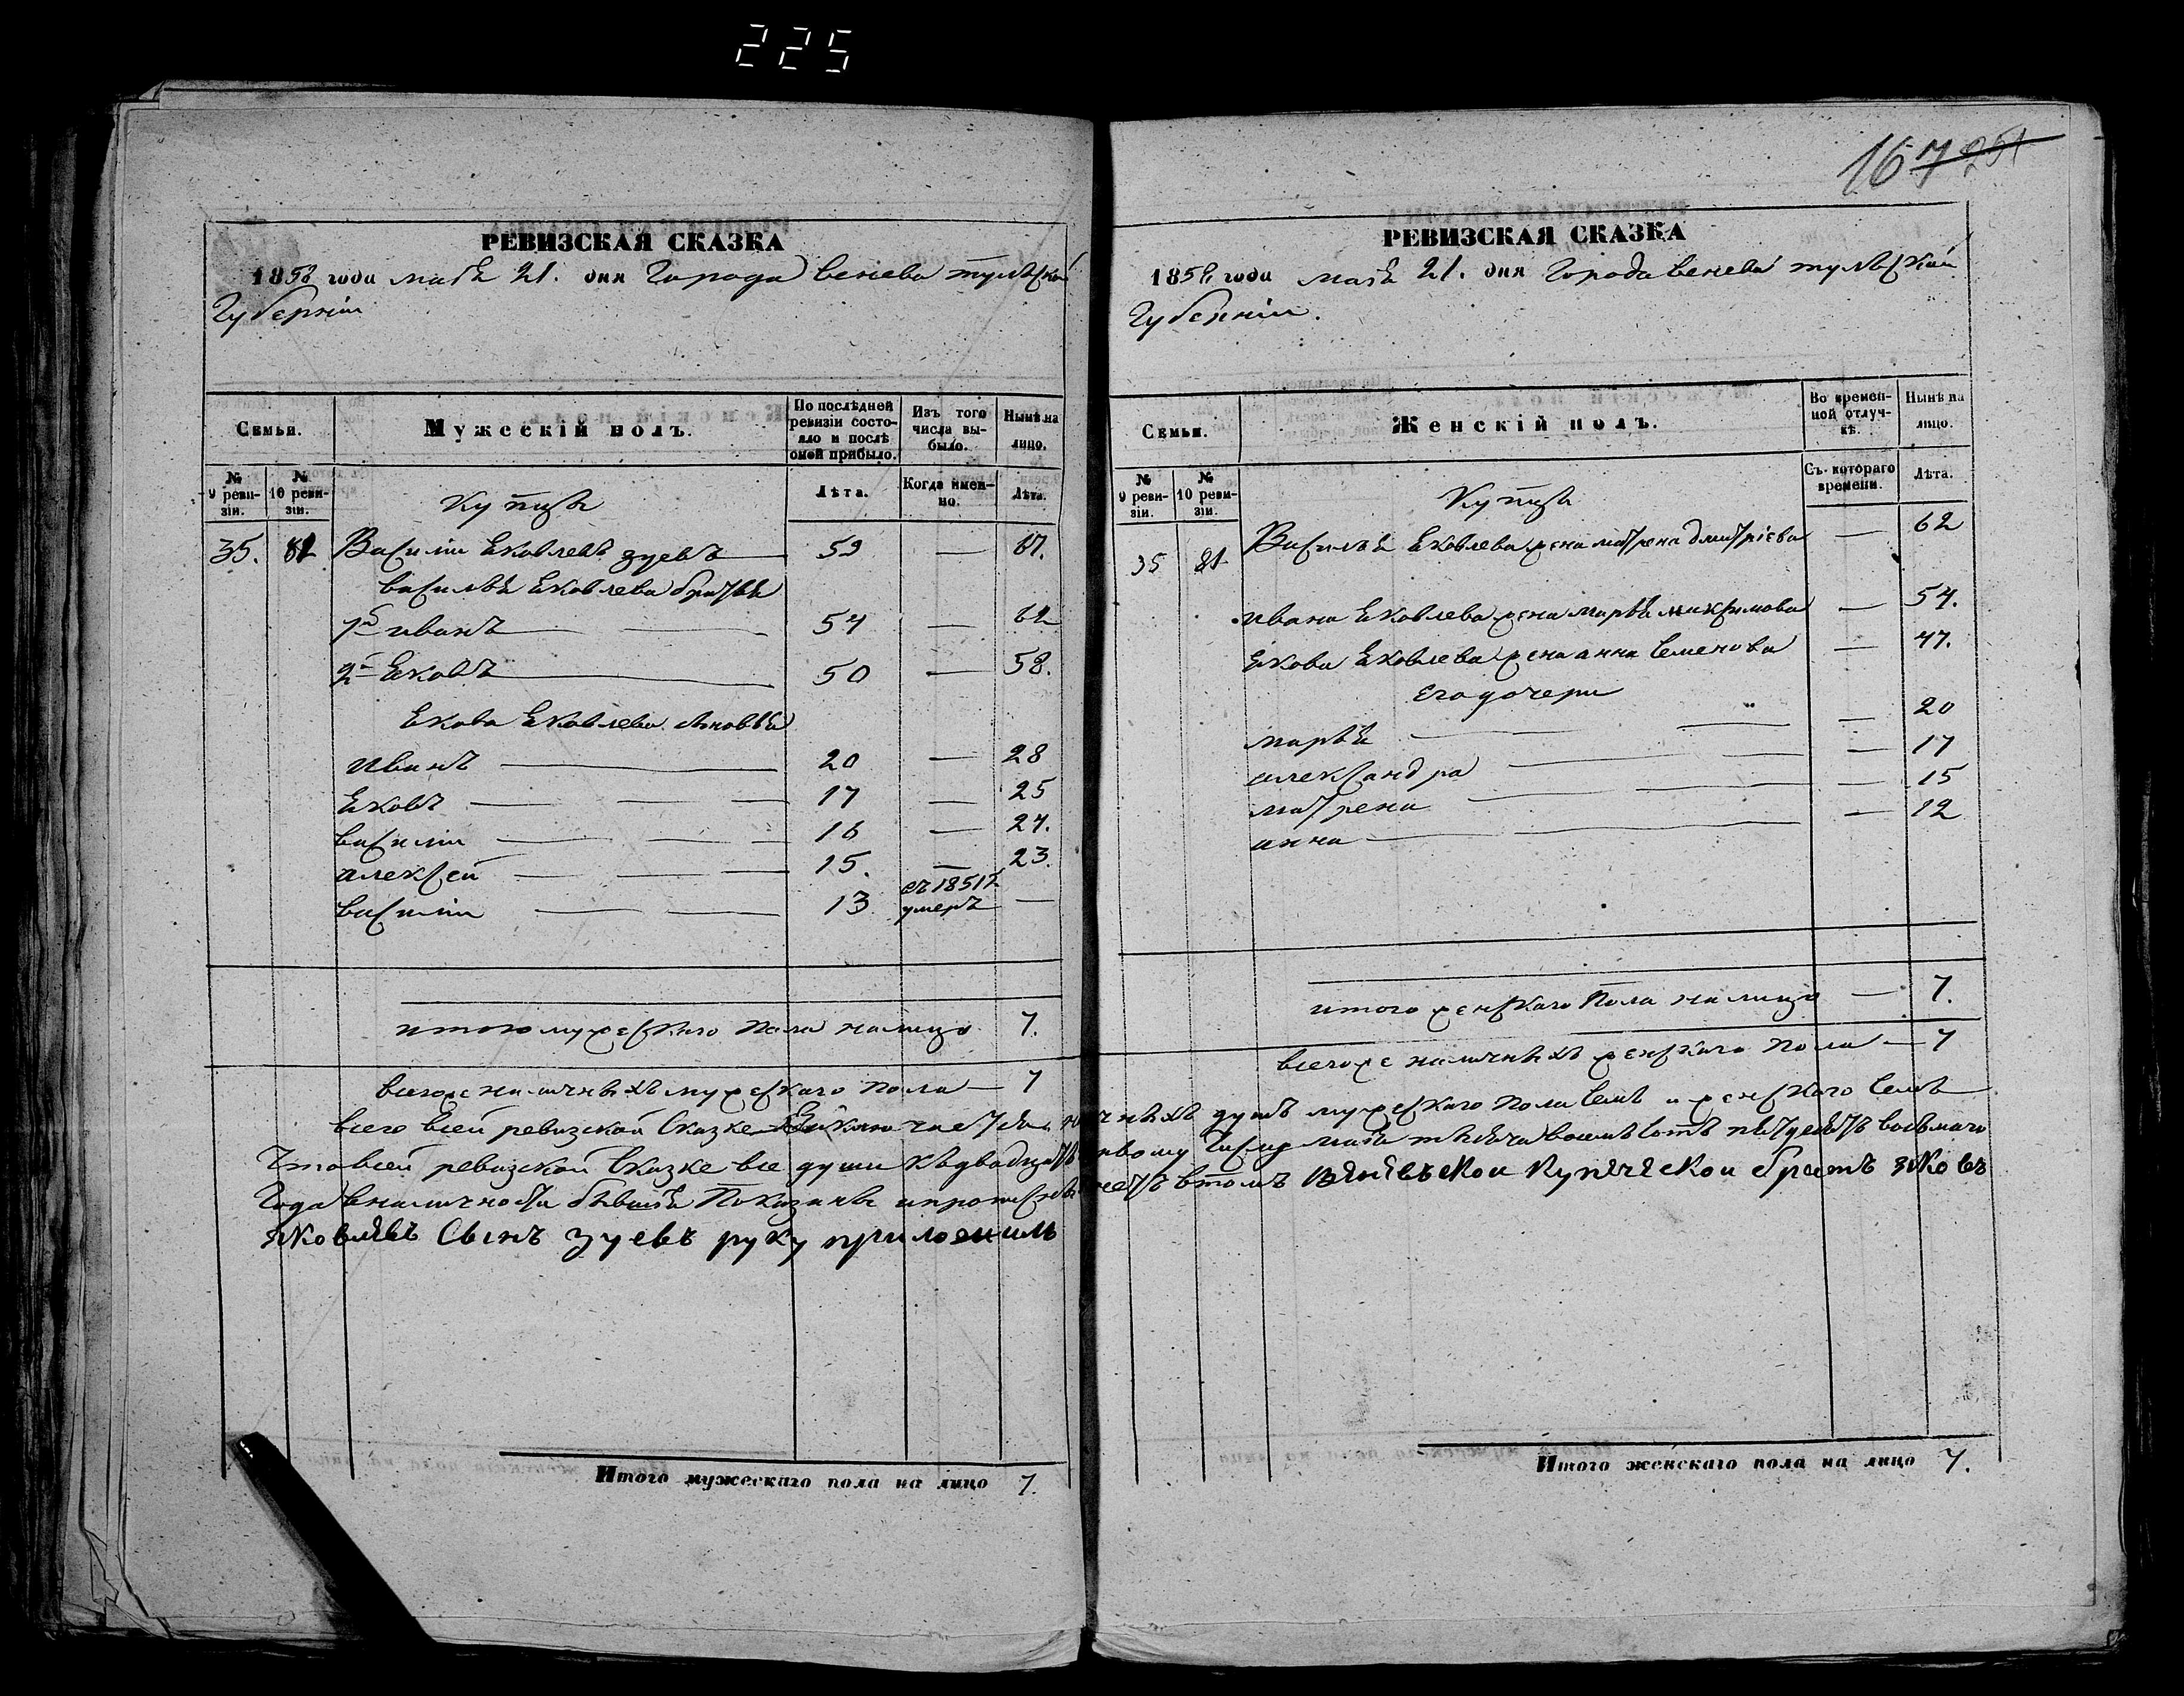 225
167 251
РЕВИЗСКАЯ СКАЗКА
1858 года маія 21. дня Города венева тулѣской
Губерніи
Семьи.
Мужескій полъ.
По послѣдней ревизіи состояло и послѣ оной прибыло.
Изъ того числа выбыло.
Нынѣ на лицо.
№ 9 ревизіи.
№ 10 ревизіи.
Лѣта.
Когда именно.
Лѣта.
Купцы
35. 81 Василіи Яковлевъ зуевъ 59 — 67.
василья Яковлева братья
1й иванъ 54 — 62
2й Яковъ 50 — 58.
Якова Яковлева сыновья
Иванъ 20 — 28
Яковъ 17 — 25
василіи 16 — 24.
алексей 15. — 23.
василіи 13 въ 1851 г. умеръ —
итого мужескаго пола налицо 7.
всегоже наличныхъ мужескаго пола — 7
Итого мужескаго пола на лицо 7.
РЕВИЗСКАЯ СКАЗКА
1858 года маія 21. дня Города венева тулѣской
Губерніи.
Семьи.
Женскій полъ.
Во временной отлучкѣ.
Нынѣ на лицо.
№ 9 ревизіи.
№ 10 ревизіи.
Съ котораго времени.
Лѣта.
Купцы
35 81 Василья Яковлева жена матрена дмитріева — 62
ивана Яковлева жена марья максимова — 54.
Якова Яковлева жена анна Семенова — 47.
его дочери
марья — 20
александра — 17
матрена — 15
анна — 12
итого женскаго пола налицо — 7.
всегоже наличныхъ женскаго пола — 7
всего всей ревизской Сказке заключается наличныхъ душъ мужескаго пола семь и женскаго Семь
Что всей ревизской Сказке все души къ двадцать первому числу маія тысяча восемь сотъ пятдесятъ восьмаго
Года вналичности бывшія Показаны
втомъ венеѣвъской Купеческой братъ яковъ
яковлевъ Сынъ зуевъ руку приложилъ
Итого женскаго пола на лицо 7.